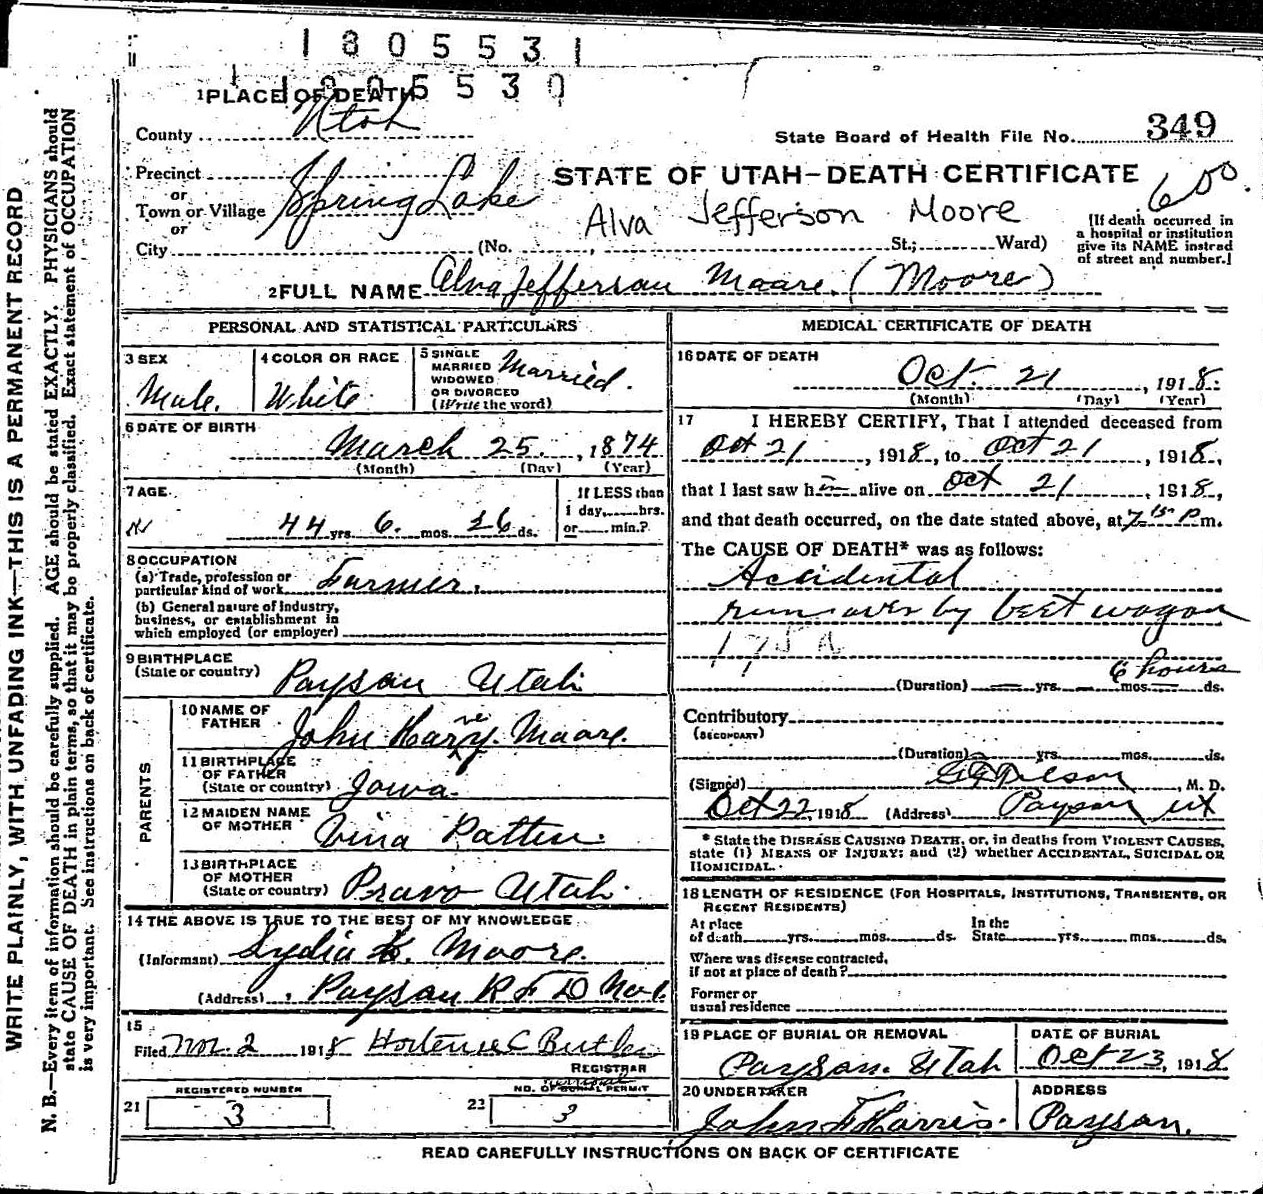 1805531
1805530
1 PLACE OF DEATH
County Utah
State Board of Health File No. 349
Precinct
or
Town or Village Spring Lake
or
City
STATE OF UTAH—DEATH CERTIFICATE
600
Alva Jefferson Moore
(No. St.; Ward)
[If death occurred in
a hospital or institution
give its NAME instead
of street and number.]
2 FULL NAME Alva Jefferson Moore. (Moore)
PERSONAL AND STATISTICAL PARTICULARS
3 SEX
Male.
4 COLOR OR RACE
White
5 SINGLE
MARRIED
WIDOWED
OR DIVORCED
(Write the word)
Married.
6 DATE OF BIRTH
March 25, 1874
(Month) (Day) (Year)
7 AGE
44 yrs. 6. mos. 26 ds.
If LESS than
1 day, hrs.
or min.?
8 OCCUPATION
(a) Trade, profession or
particular kind of work Farmer.
(b) General nature of industry,
business, or establishment in
which employed (or employer)
9 BIRTHPLACE
(State or country) Payson Utah
PARENTS
10 NAME OF
FATHER John Harvy Moore.
11 BIRTHPLACE
OF FATHER
(State or country) Iowa.
12 MAIDEN NAME
OF MOTHER Vina Patten.
13 BIRTHPLACE
OF MOTHER
(State or country) Provo Utah.
14 THE ABOVE IS TRUE TO THE BEST OF MY KNOWLEDGE
(Informant) Lydia K. Moore.
(Address) Payson R F D No 1.
15
Filed Nov. 2 1918 Hortense C Butler
REGISTRAR
REGISTERED NUMBER
21 3
NO. OF BURIAL PERMIT
removal
22 3
MEDICAL CERTIFICATE OF DEATH
16 DATE OF DEATH
Oct. 21, 1918.
(Month) (Day) (Year)
17 I HEREBY CERTIFY, That I attended deceased from
Oct 21, 1918, to Oct 21, 1918,
that I last saw him alive on Oct 21, 1918,
and that death occurred, on the date stated above, at 7 15 P m.
The CAUSE OF DEATH* was as follows:
Accidental
run over by beet wagon
175a
6 hours
(Duration) — yrs. — mos. — ds.
Contributory
(SECONDARY)
(Duration) yrs. mos. ds.
(Signed) M. D.
Oct 22, 1918 (Address) Payson Ut
* State the DISEASE CAUSING DEATH, or, in deaths from VIOLENT CAUSES,
state (1) MEANS OF INJURY; and (2) whether ACCIDENTAL, SUICIDAL OR
HOMICIDAL.
18 LENGTH OF RESIDENCE (FOR HOSPITALS, INSTITUTIONS, TRANSIENTS, OR
RECENT RESIDENTS)
At place In the
of death yrs. mos. ds. State yrs. mos. ds.
Where was disease contracted,
if not at place of death?
Former or
usual residence
19 PLACE OF BURIAL OR REMOVAL
Payson. Utah
DATE OF BURIAL
Oct 23, 1918.
20 UNDERTAKER
John F Harris.
ADDRESS
Payson.
READ CAREFULLY INSTRUCTIONS ON BACK OF CERTIFICATE
WRITE PLAINLY, WITH UNFADING INK—THIS IS A PERMANENT RECORD
N. B.—Every item of information should be carefully supplied. AGE should be stated EXACTLY. PHYSICIANS should
state CAUSE OF DEATH in plain terms, so that it may be properly classified. Exact statement of OCCUPATION
is very important. See instructions on back of certificate.